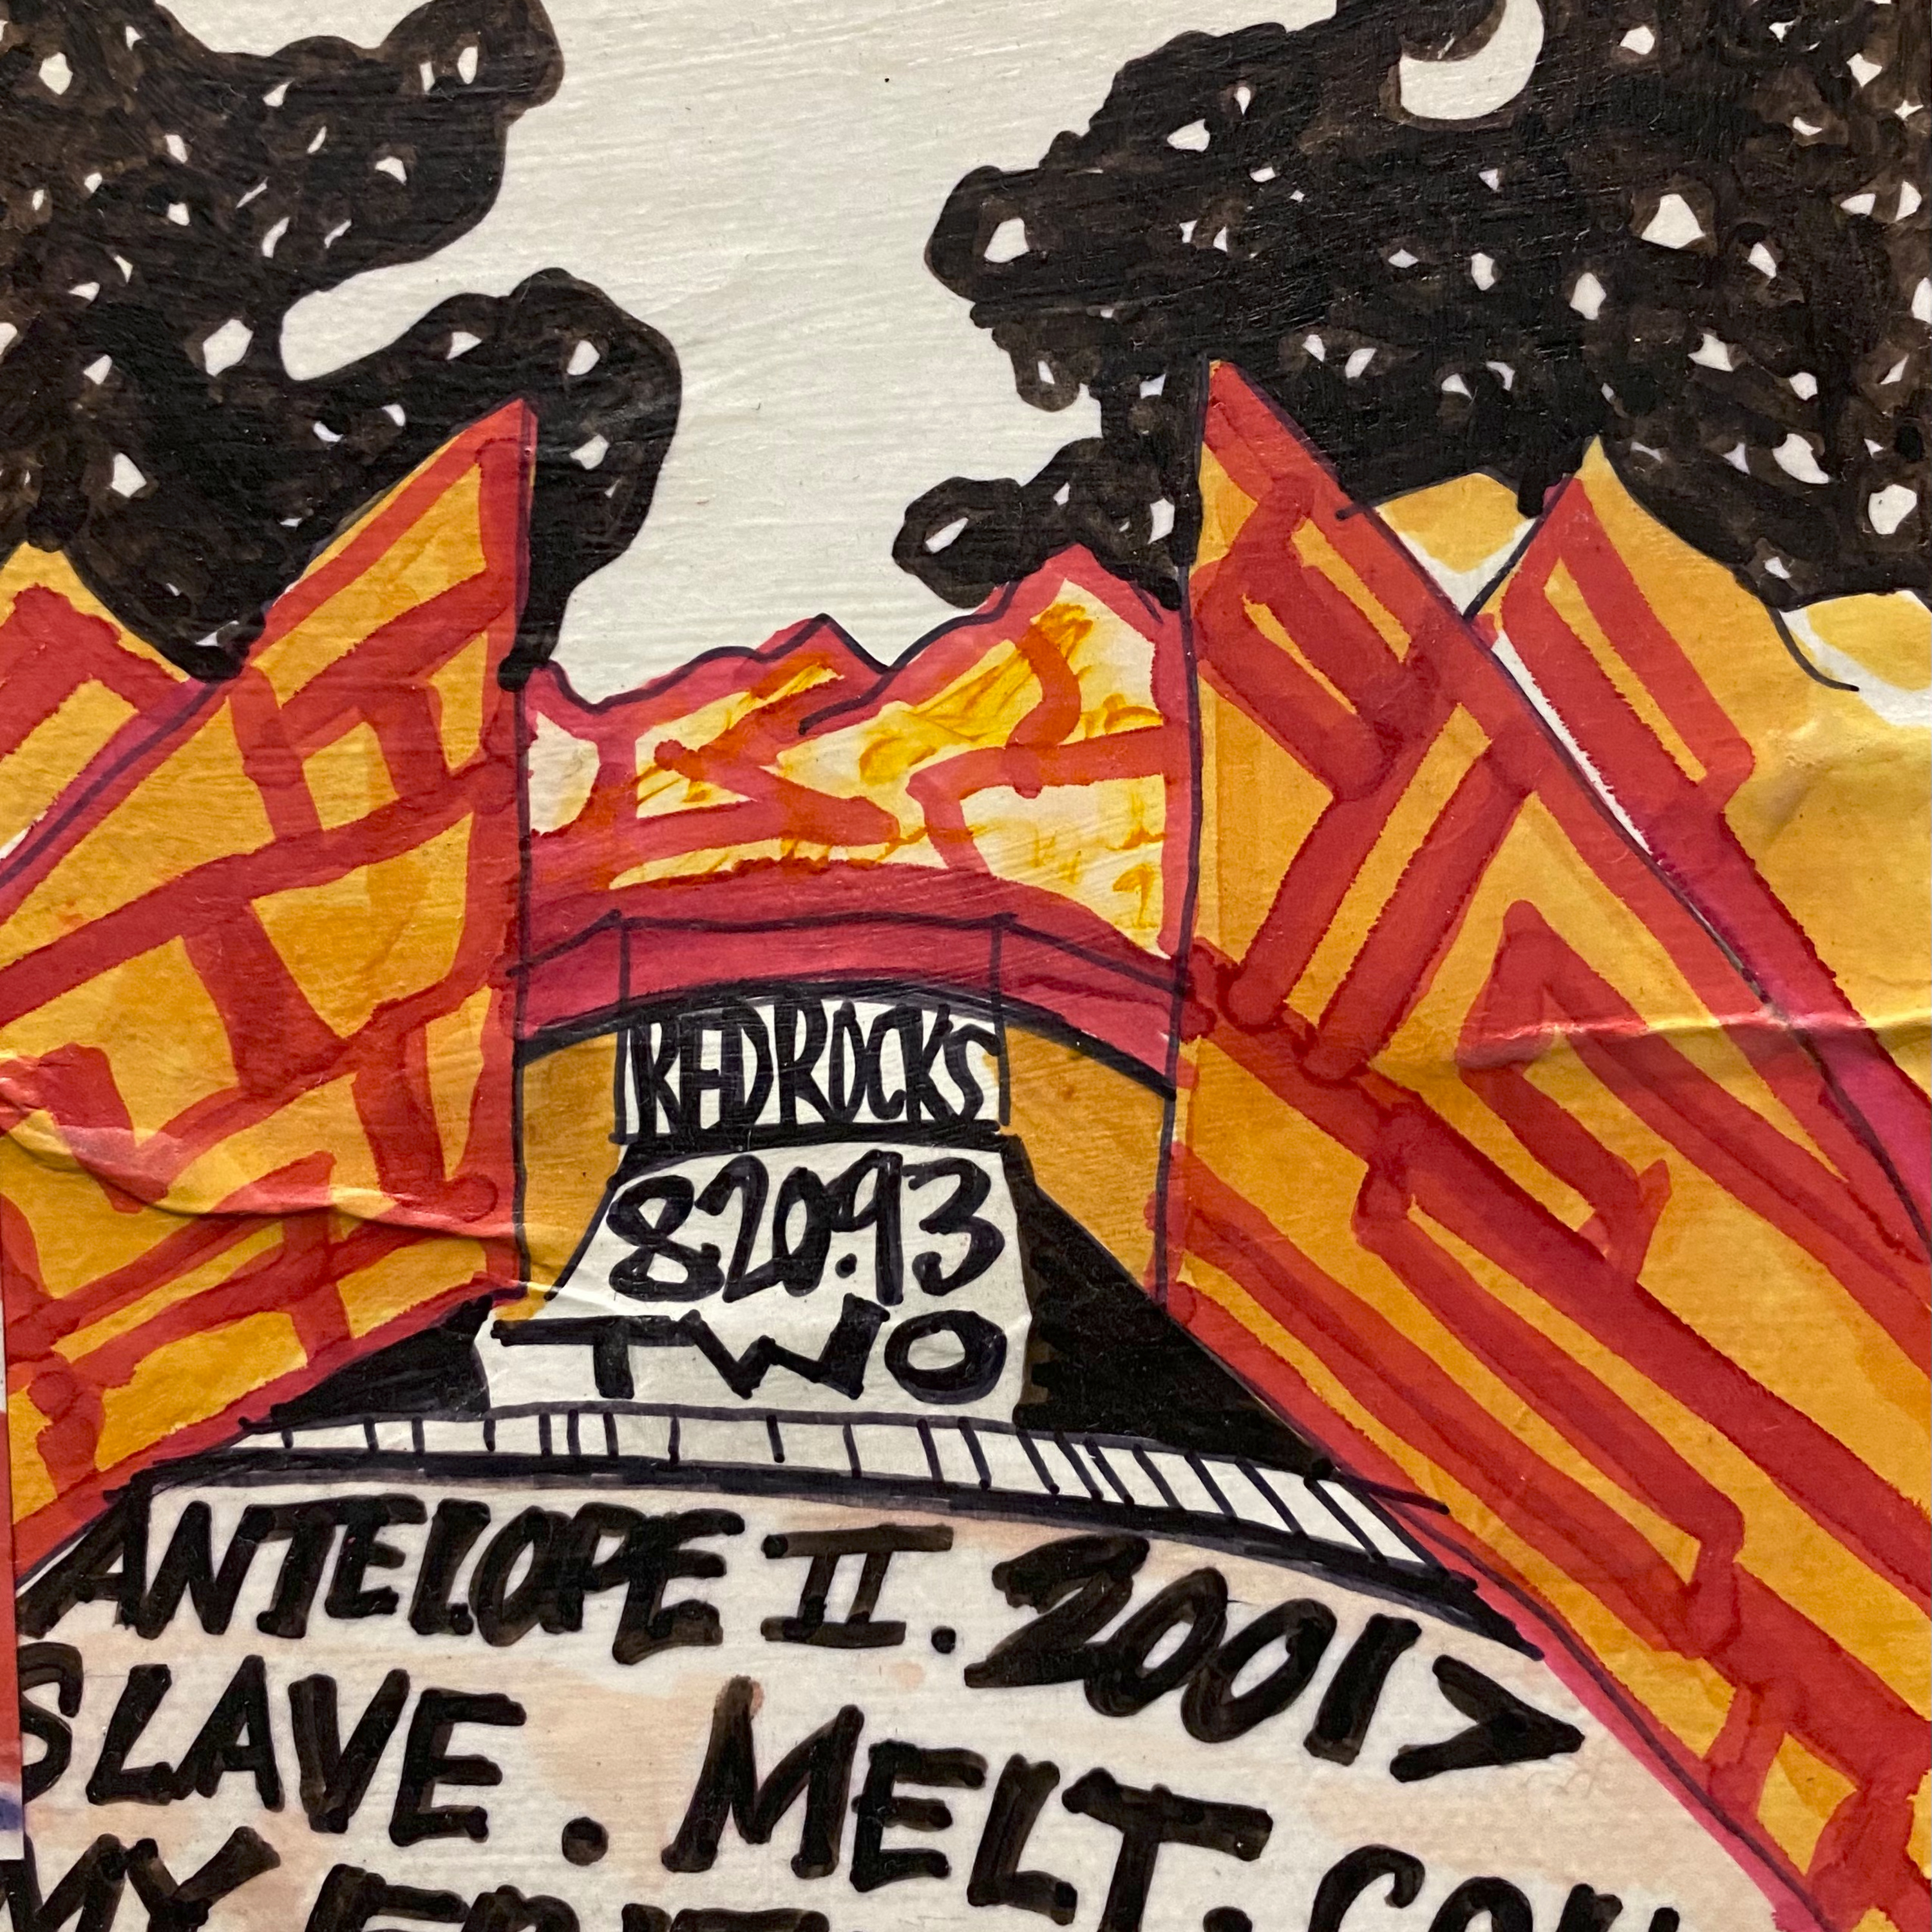 REDROCKS
8.20.93
TWO
ANTELOPE II. 2001>
SLAVE. MELT.
MY